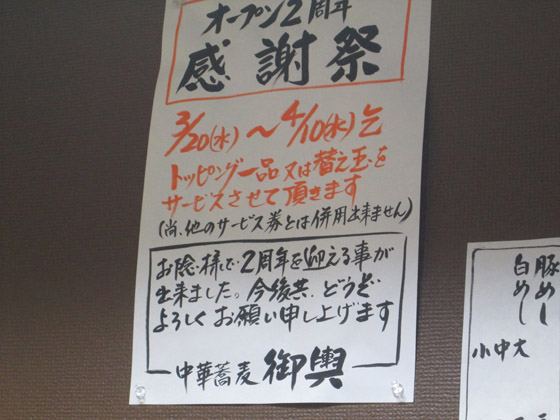 オープン2周年
感謝祭
3/20(水)～4/10(水)迄
トッピング一品又は替え玉を
サービスさせて頂きます
(尚、他のサービス券とは併用出来ません)
お陰様で2周年を迎える事が
出来ました。今後共、どうぞ
よろしくお願い申し上げます
中華蕎麦 御輿
豚めし
白めし
小中大